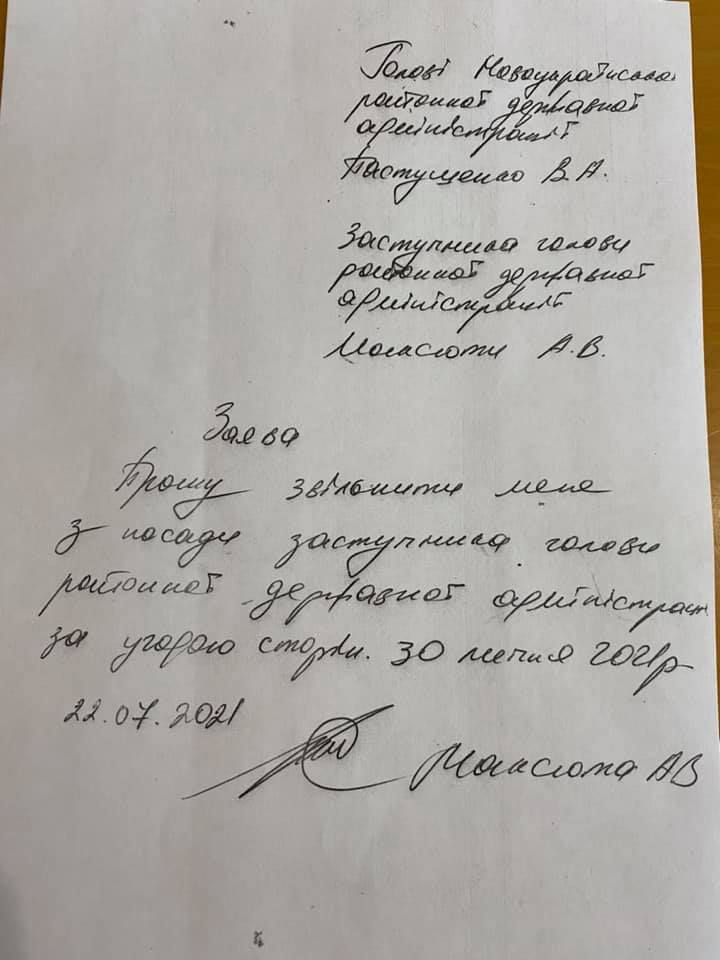 Голові Новоукраїнської
районної державної
адміністрації
Пастущенко В.А.
Заступника голови
районної державної
адміністрації
А.В.
Заява
Прошу звільнити мене
з посади заступника голови
районної державної адміністрації
за угодою сторін. 30 липня 2021р
22.07.2021
АВ